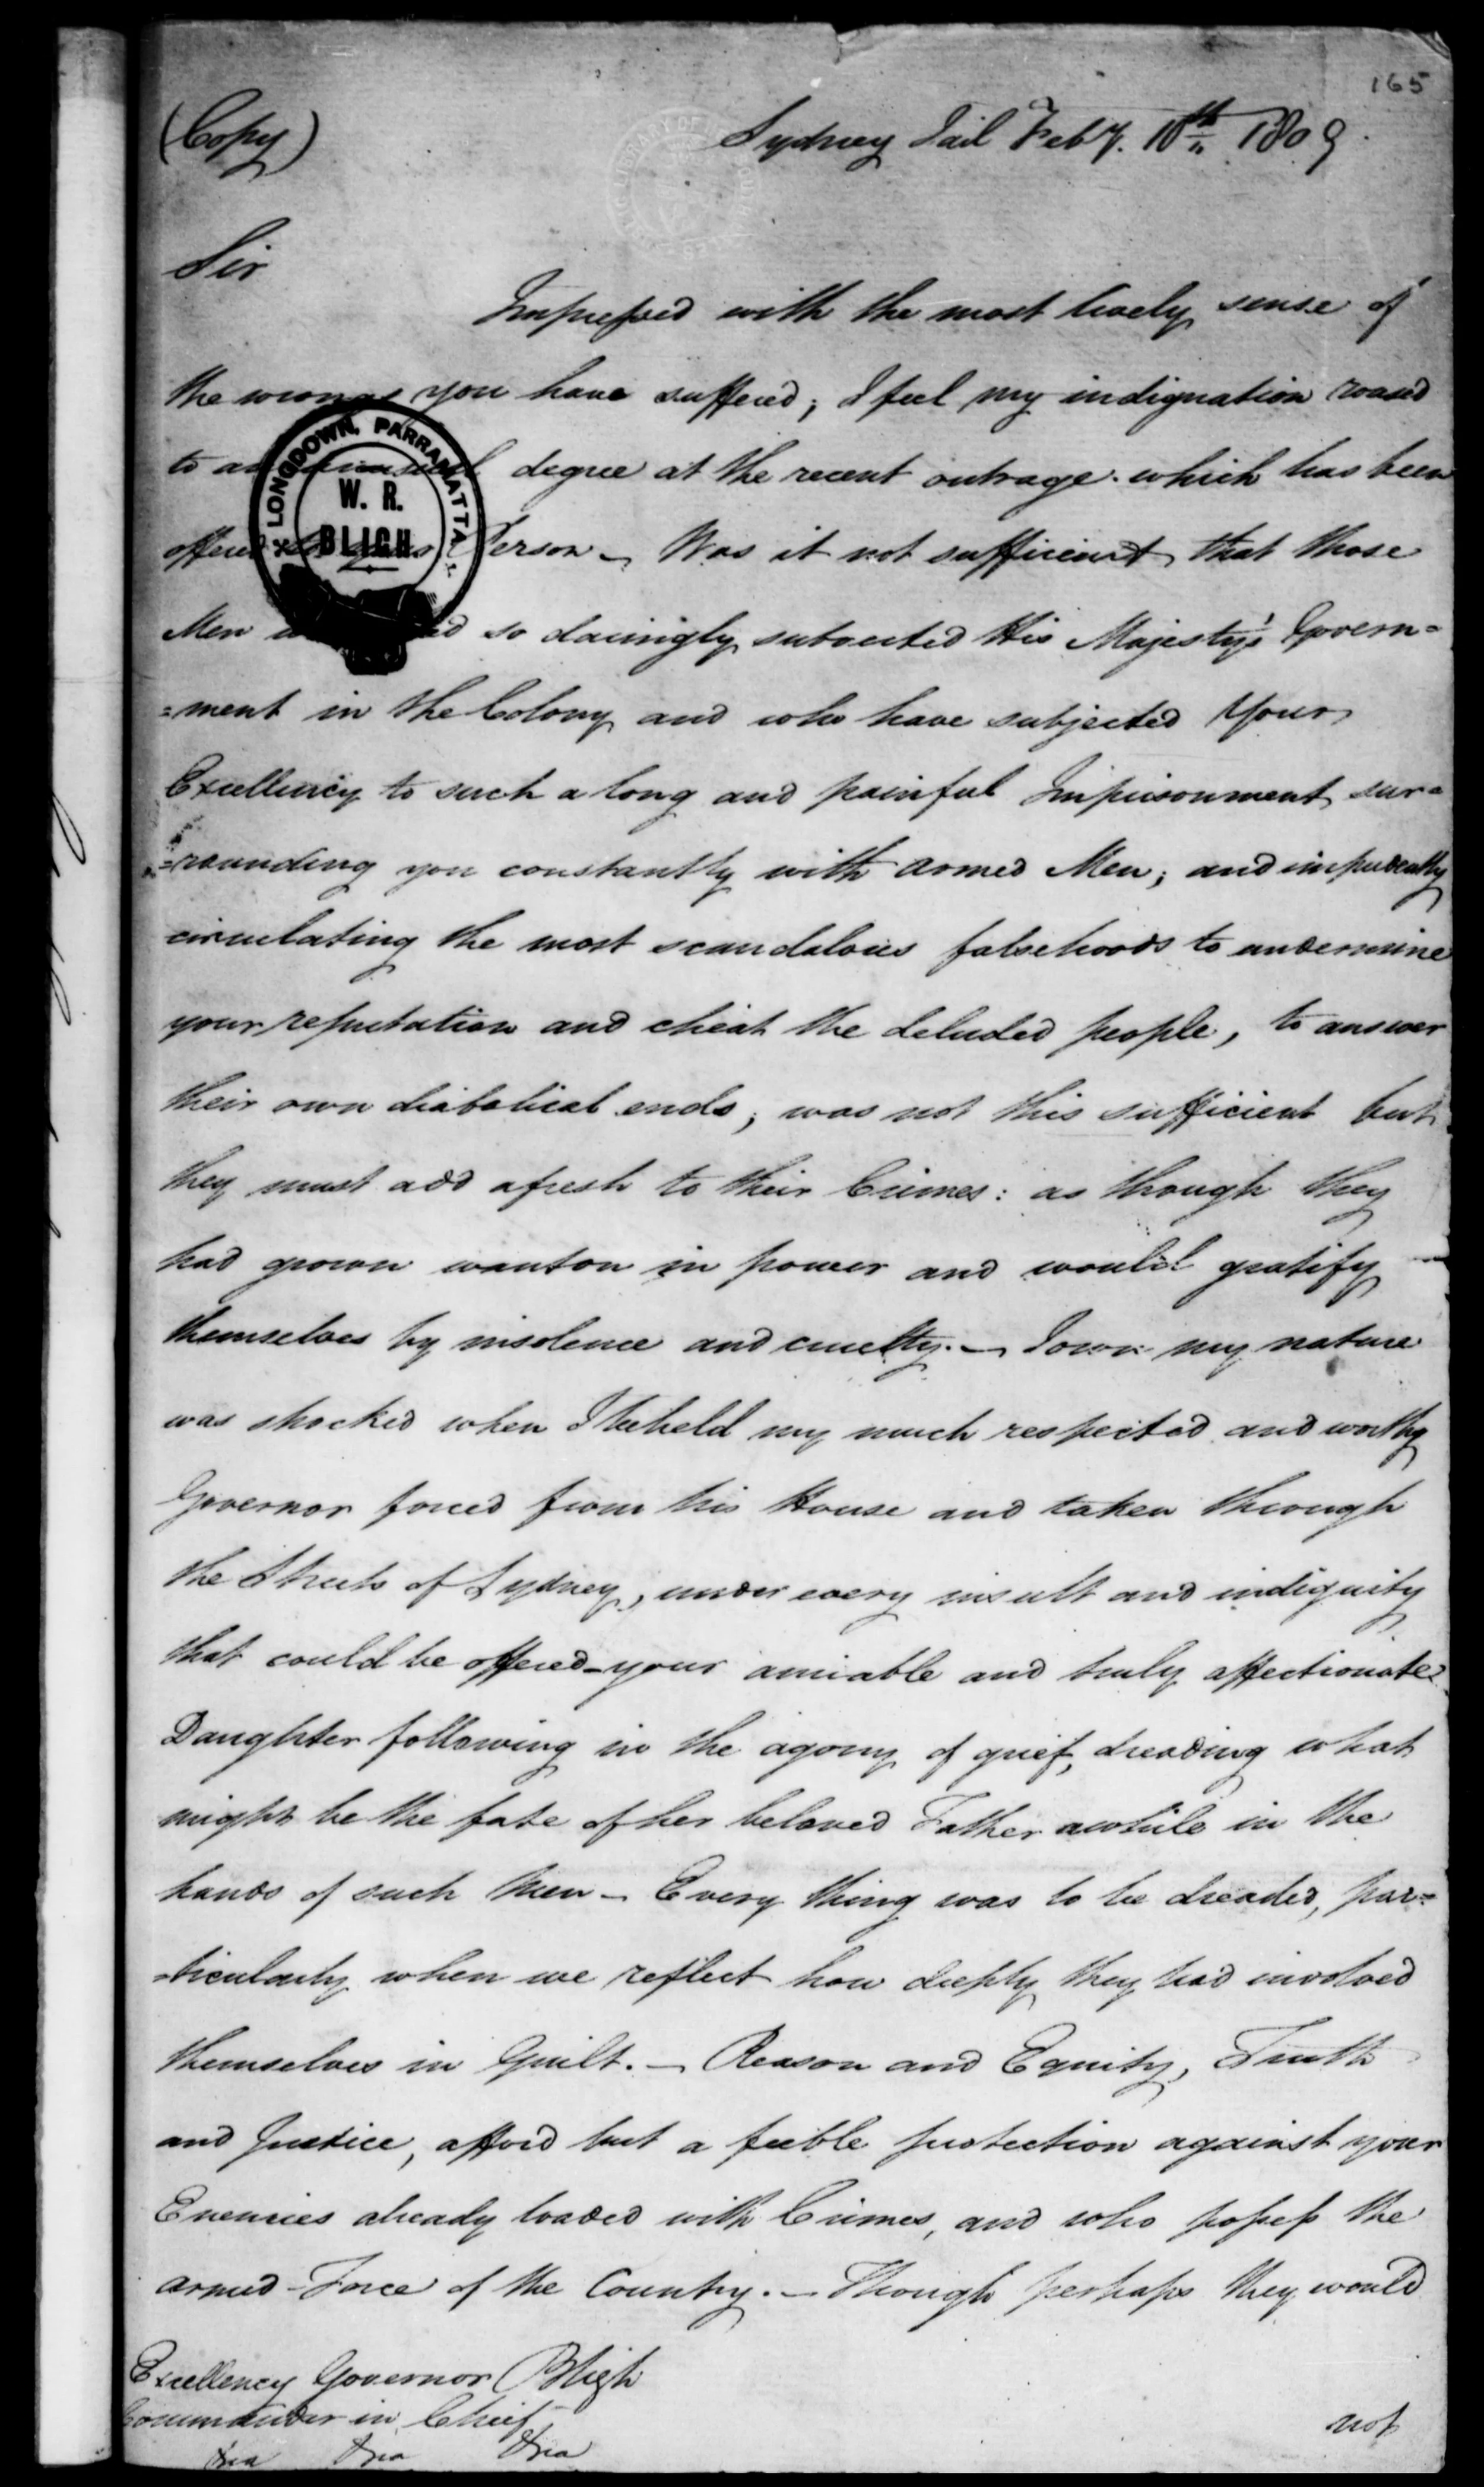 165
(Copy)
Sydney Jail Feby. 10th 1809.
Sir
Impressed with the most lively sense of
the wrongs you have suffered; I feel my indignation roased
to an degree at the recent outrage which has been
offered to your Person – Was it not sufficient that those
Men so daringly subverted His Majesty's Govern=
=ment in the Colony and who have subjected Your
Excellency to such a long and painful Imprisonment sur=
=rounding you constantly with armed Men; and impudently
circulating the most scandalous falsehoods to undermine
your reputation and cheat the deluded people, to answer
their own diabolical ends; was not this sufficient but
they must add afresh to their Crimes: as though they
had grown wanton in power and would gratify
themselves by insolence and cruelty. – I own my nature
was shocked when I beheld my much respected and worthy
Governor forced from his House and taken through
the Streets of Sydney, under every insult and indignity
that could be offered – your amiable and truly affectionate
Daughter following in the agony of grief, dreading what
might be the fate of her beloved Father awhile in the
hands of such Men – Every thing was to be dreaded, par=
=ticularly when we reflect how deeply they had involved
themselves in Guilt. – Reason and Equity, Truth
and Justice, afford but a feeble protection against your
Enemies already loaded with Crimes, and who possess the
armed Force of the Country. – Though perhaps they would
Excellency Governor Bligh
Commander in Chief
&ca &ca &ca
not
LONGDOWN, PARRAMATTA
W. R.
BLIGH